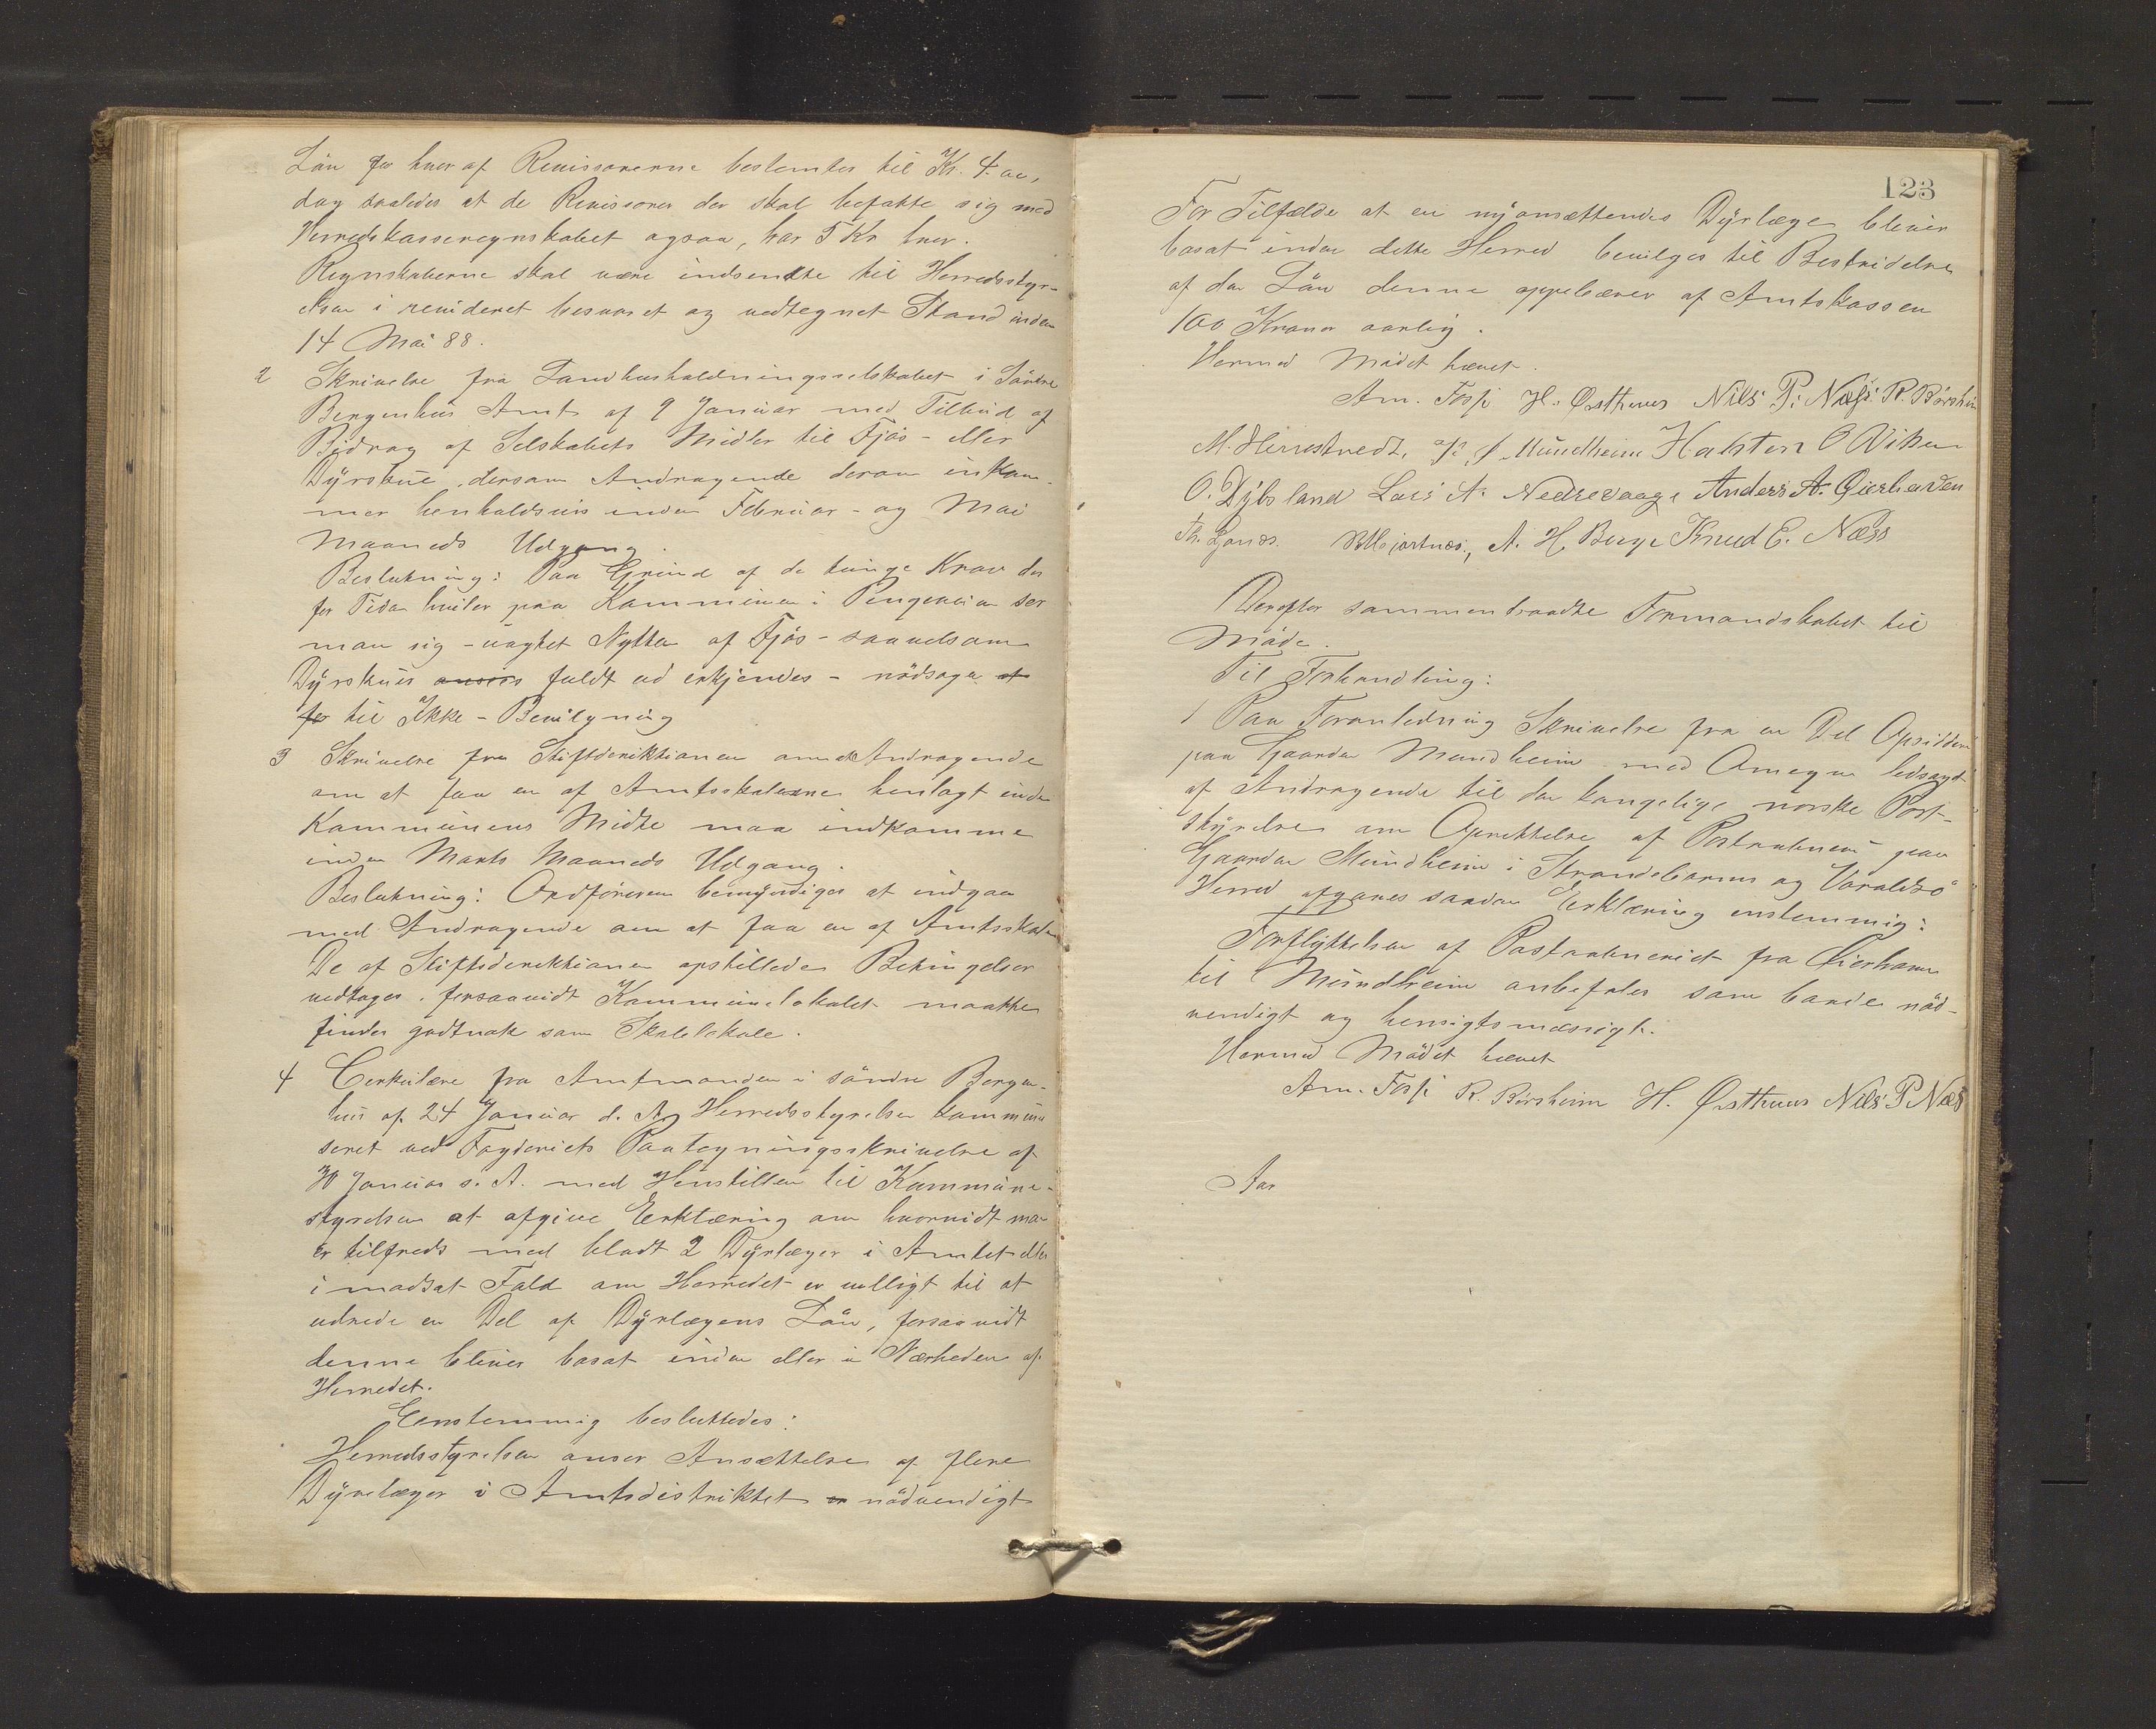 Lön for hver af Revissorerne bestemtes til Kr. 4.00,
dog saaledes at de Revisorer der skal befatte sig med
Herredskasseregnskabet ogsaa, har 5 Kr hver.
Regnskaberne skal være indsendte til Herredsstyr-
elsen i revideret besvaret og vedtegnet Stand inden
14 Mai 88.
2 Skrivelse fra Landhusholdningsselskabet i Söndre
Bergenhus Amt af 9 Januar med Tilbud af
Bidrag af Selskabets Midler til Fjös- eller
Dyrskue, dersom Andragende derom inkom-
mer henholdsvis inden Februar- og Mai
Maaneds Udgang.
Beslutning: Paa Grund af de tunge Krav der
for Tiden hviler paa Kommunen i Pengeveien ser
man sig - uagtet Nytten af Fjös- saavelsom
Dyrskuer ansees fuldt ud erkjendes - nödsaget at
for til Ikke-Bevilgning
3 Skrivelse fra Stiftsdirektionen Andragende
om at faa en af Amtsskolerne henlagt inden
Kommunens Midte maa indkomme
inden Marts Maaneds Udgang.
Beslutning: Ordföreren bemyndiges at indgaa
med Andragende om at faa en af Amtsskolerne
De af Stiftsdirektionen opstillede Betingelser
vedtages, forsaavidt Kommunelokalet maatte
findes godtnok som Skolelokale.
4 Cerkulære fra Amtmanden i söndre Bergen-
hus af 24 Januar d. A. Herredsstyrelsen kommuni
seret ved Fogderiets Paategningsskrivelse af
30 Januar s. A. med Henstillen til Kommune-
styrelsen at afgive Erklæring om hvorvidt man
er tilfreds med blodt 2 Dyrlæger i Amtet eller
i modsat Fald om Herredet er velligt til at
udrede en Del af Dyrlægens Lön, forsaavidt
denne bliver bosat inden eller i Nærheden af
Herredet.
Eenstemmig besluttedes:
Herredsstyrelsen anser Ansættelse af flere
Dyrelæger i Amtsdistriktet er nödvendigt
123
For Tilfælde at en nyansættendes Dyrlæge bliver
bosat inden dette Herred bevilges til Bestridelse
af den Lön denne oppebærer af Amtskassen
100 Kroner aarlig.
Hermed Mödet hævet.
Am. Fosse H. Østhuus Nils P. Næss. R. Börsheim
M. Herrestvedt, Mundheim Halsten O Viken
O. Dybsland Lars A. Nedrevaage Anders A. Qierhaven
Th. Ljones. Hjortnæs, A. H. Berge Knud E. Næss
Derefter sammentraadte Formandskabet til
Möde.
Til Forhandling:
1 Paa Foranledning Skrivelse fra en Del Opsiddere
paa Gaarden Mundheim med Omegn ledsaget
af Andragende til den kongelige norske Post-
styrelse om Oprettelse af Postaabneri paa
Gaarden Mundheim i Strandebarms og Varaldsö
Herred afgaves saadan Erklæring enstemmig:
Forflyttelsen af Postaabneriet fra Qierhavn
til Mundheim anbefales som baade nöd-
vendigt og hensigtsmæssigt.
Hermed Mödet hævet
Am. Fosse R. Börsheim H. Østhuus Nils P Næss
Aar